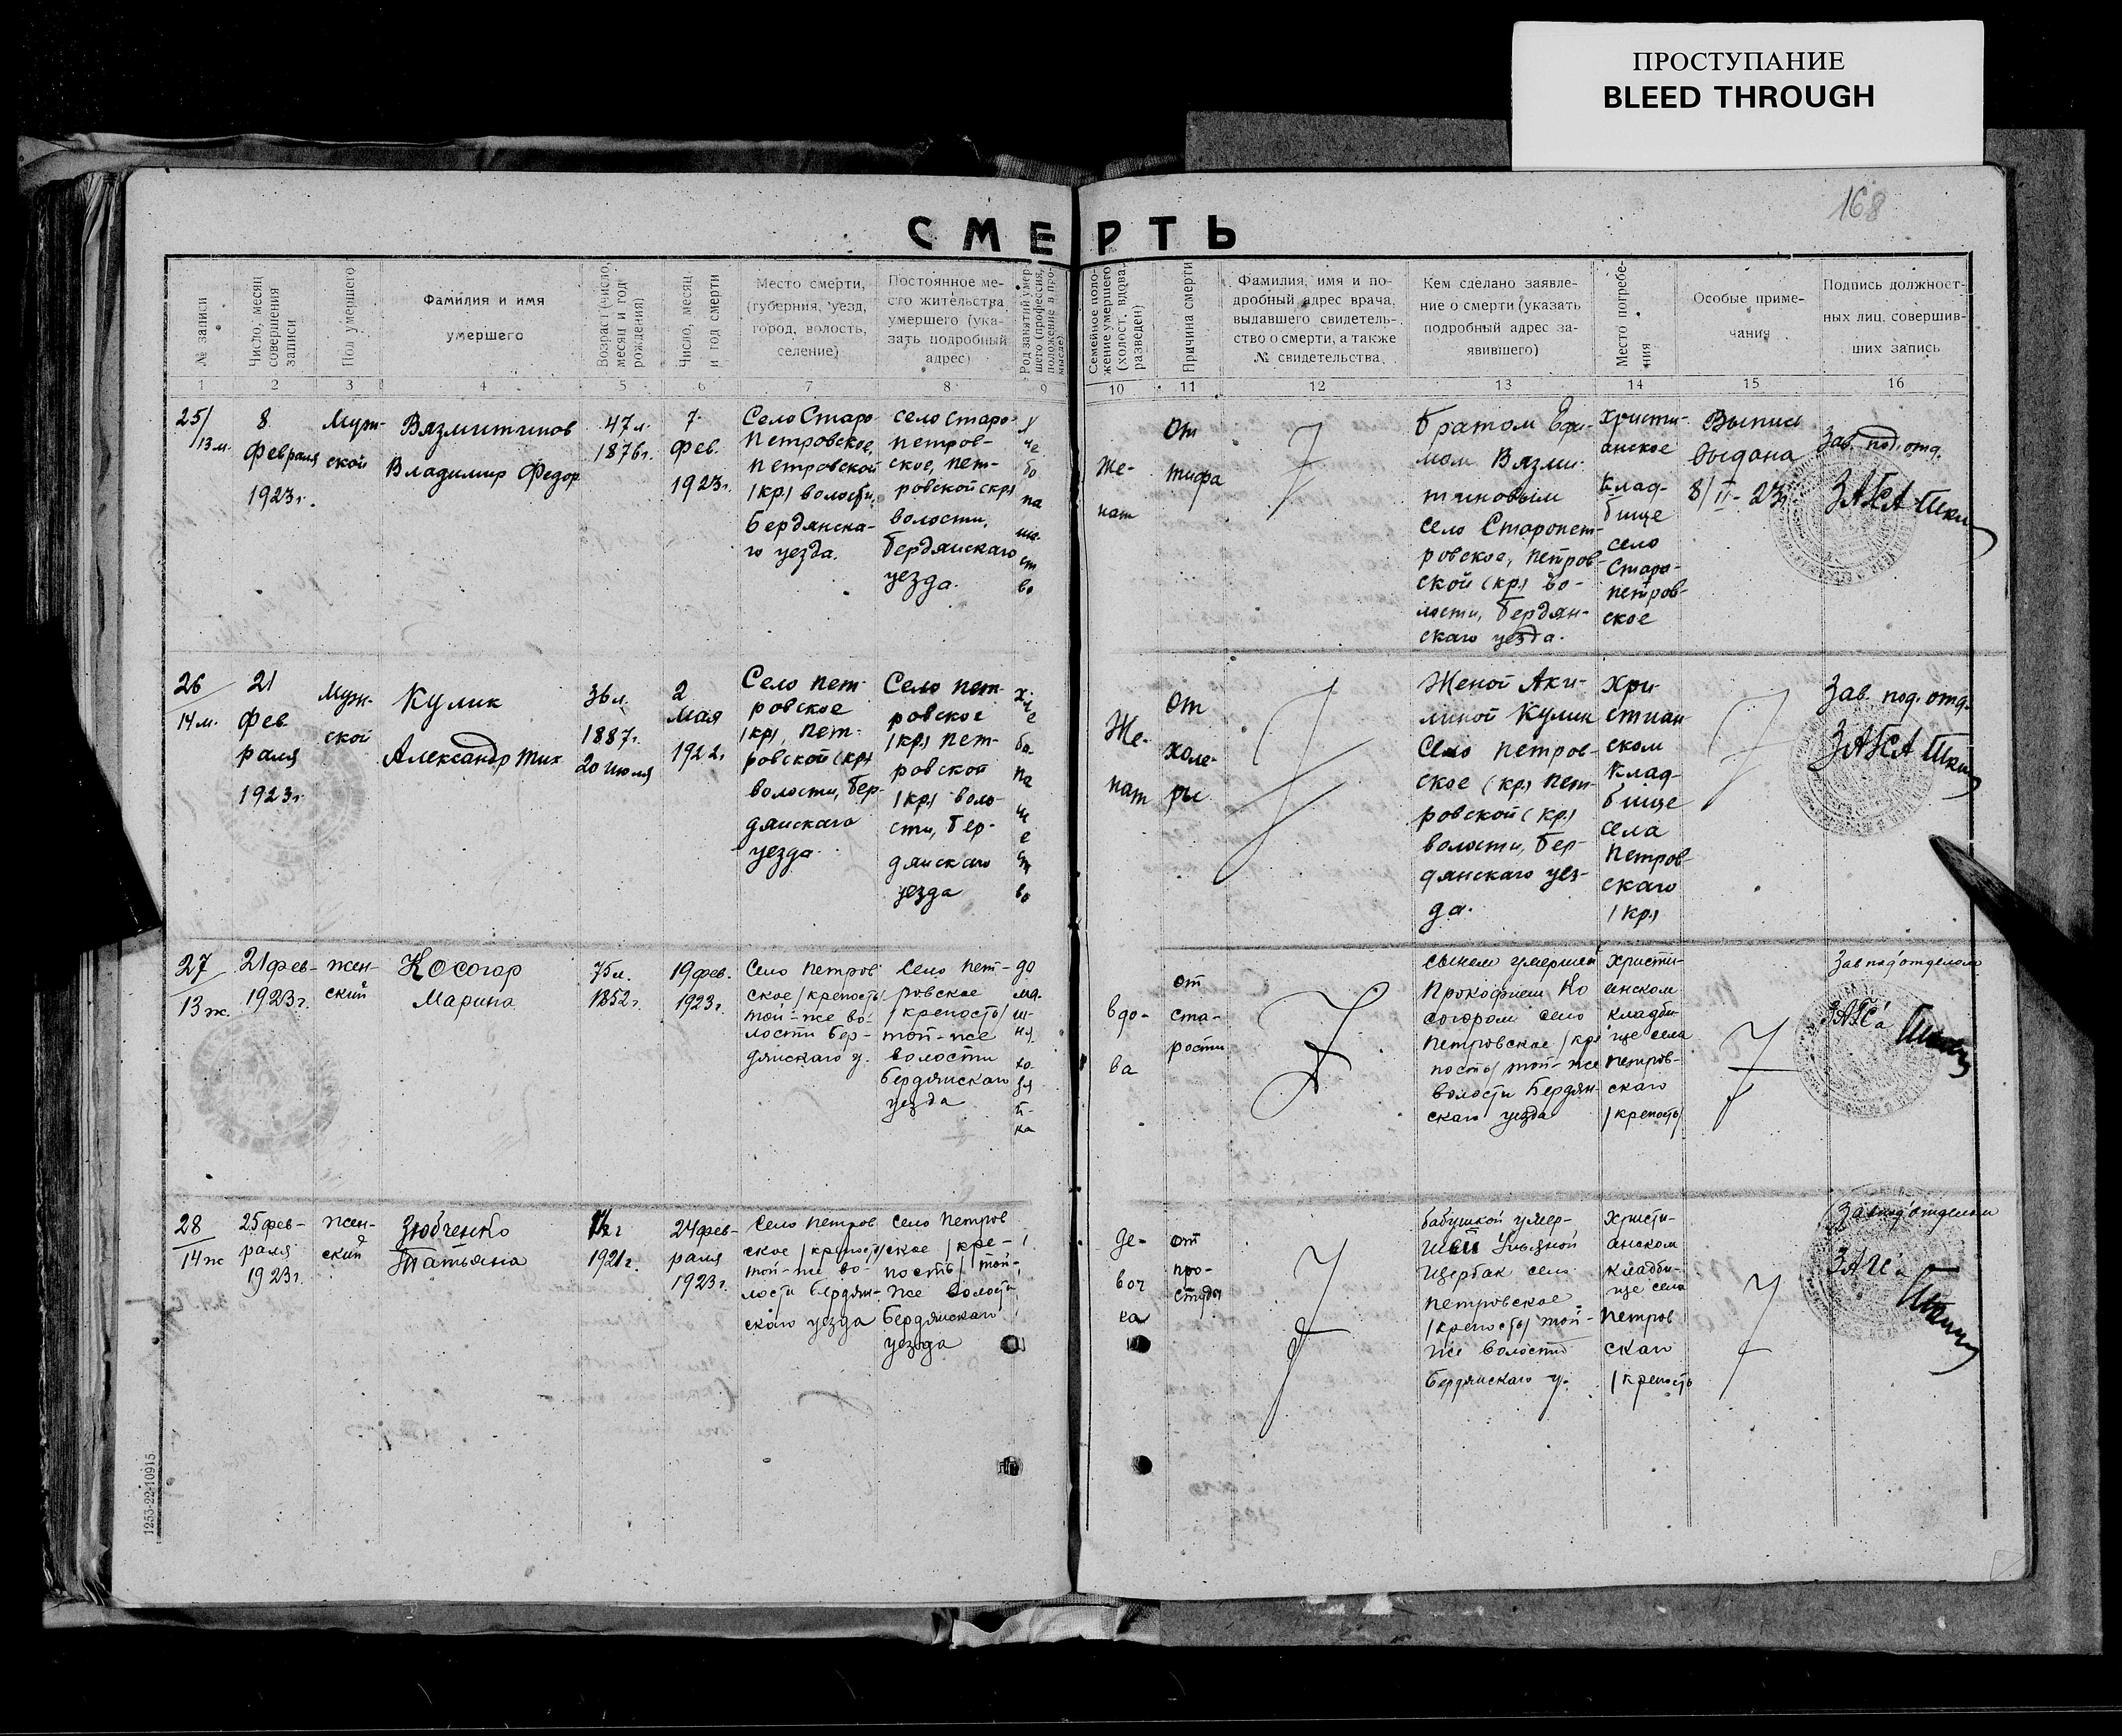 ПРОСТУПАНИЕ
BLEED THROUGH
168
СМЕРТЬ
№ записи
Число, месяц
совершения
записи
Пол умершего
Фамилия и имя
умершего
Возраст (число,
месяц и год
рождения)
Число, месяц
и год смерти
Место смерти,
(губерния, уезд,
город, волость,
селение)
Постоянное ме-
сто жительства
умершего (ука-
зать подробный
адрес)
Род занятий умер-
шего (профессия,
положение в про-
мысле)
Семейное поло-
жение умершего
(холост, вдова,
разведен)
Причина смерти
Фамилия, имя и по-
дробный адрес врача,
выдавшего свидетель-
ство о смерти, а также
№ свидетельства
Кем сделано заявле-
ние о смерти (указать
подробный адрес за-
явившего)
Место погребе-
ния
Особые приме-
чания
Подпись должност-
ных лиц, совершив-
ших запись
1 2 3 4 5 6 7 8 9 10 11 12 13 14 15 16
25/
13 м.
8
февраля
1923 г.
Муж-
ской
Вязмитинов
Владимир Федор
47 л.
1876 г.
7
Фев.
1923 г.
Село Старо
Петровское,
Петровской
/кр/ волости,
Бердянска-
го уезда.
село Старо-
петров-
ское, пет-
ровской (кр)
волости,
Бердянскаго
уезда.
Же-
нат
От
тифа
братом Ефи-
мом Вязми-
тиновым
село Старопет-
ровское, Петров-
ской (кр) во-
лости, Бердян-
скаго уезда.
Христи-
анское
Клад-
бище
село
Старо-
петров-
ское
Выпись
выдана
8/II-23 г.
Зав. под. отд.
ЗАГСА
26/
14 м.
21
Фев
раля
1923 г.
Муж-
ской
Кулик
Александр Тих
36 л.
1887 г.
20 июля
2
мая
1922 г.
Село Пет-
ровское
/кр/, Пет-
ровской (кр)
волости, Бер-
дянскаго
уезда.
Село Пет-
ровское
/кр/ Пет-
ровской
/кр/ воло-
сти, Бер-
дянскаго
уезда
Же-
нат
От
холе-
ры
Женой Аки-
линой Кулик
Село Петров-
ское (кр) Пет-
ровской (кр)
волости, Бер-
дянскаго уез-
да.
Хри-
стиан
ском
Клад-
бище
села
Петров-
скаго
/кр/
Зав. под. отд.
ЗАГСА
27/
13 ж.
21 фев-
1923 г.
жен-
ский
Косогор
Марина
75 л.
1852 г.
19 фев.
1923 г.
Село Петров
ское /крепость/
той-же во-
лости Бер-
дянскаго у.
Село Пет-
ровское
/крепость/
той-же
волости
Бердянскаго
уезда
до
ма-
ш-
ня
хо-
зя
й-
ка
вдо-
ва
от
ста-
рости
сыном умершей
Прокофием Ко
согором село
Петровское /кре
пость/ той-же
волости Бердян-
скаго уезда
Христи-
анском
кладби-
ще села
Петров-
скаго
/крепость/
Зав под отделом
ЗАГС'а
28/
14 ж
25 фев-
раля
1923 г.
жен-
ский
Зюбченко
Татьяна
1921 г.
24 фев-
раля
1923 г.
Село Петров
ское /крепость/
той-же во-
лости Бердян-
скаго уезда
Село Петров
ское /кре-
пость/ той-
же волости
Бердянскаго
уезда
де-
воч
ка
от
про-
студы
бабушкой умер-
шей Ульяной
Щербак село
Петровское
/крепость/ той-
же волости
Бердянскаго у.
Христи-
анском
кладби-
ще села
Петров
скаго
/крепость
Зав под отделом
ЗАГС'а
1253-22-10915